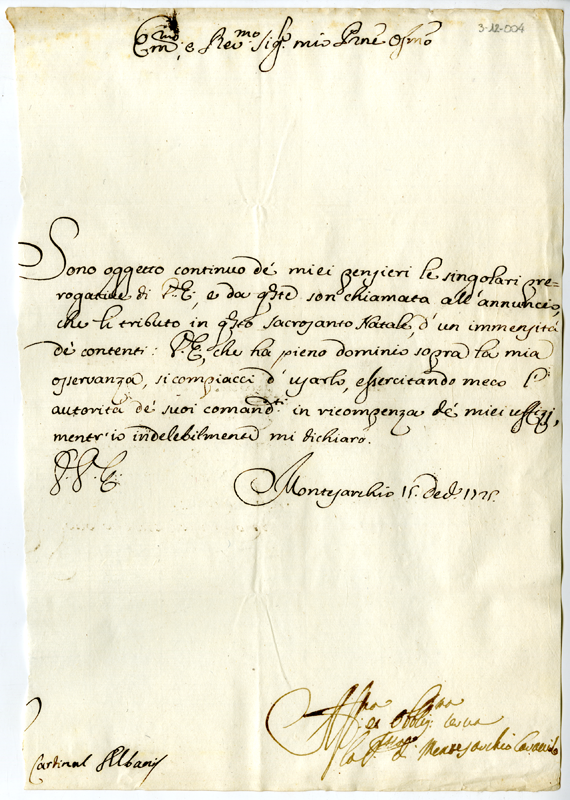 3-12-004
Em.mo e Rev.mo Sig.r mio P.rne Oss.mo
Sono oggetto continuo de' miei pensieri le singolari pre=
rogative di V.E., e da q.ste son chiamata all'annuncio,
che li tributo in q.sto Sacrosanto Natale, d'un immensità
de contenti: V.E., che ha pieno dominio sopra la mia
osservanza, si compiacci d'usarlo, essercitando meco l'
autorità de' suoi comand.ti in ricompenza de' miei uffizj,
mentr'io indelebilmente mi dichiaro.
V.V.E.
Montesarchio 15. Dec. 1725.
Serva
La P. di Montesarchio
Cardinal Albani